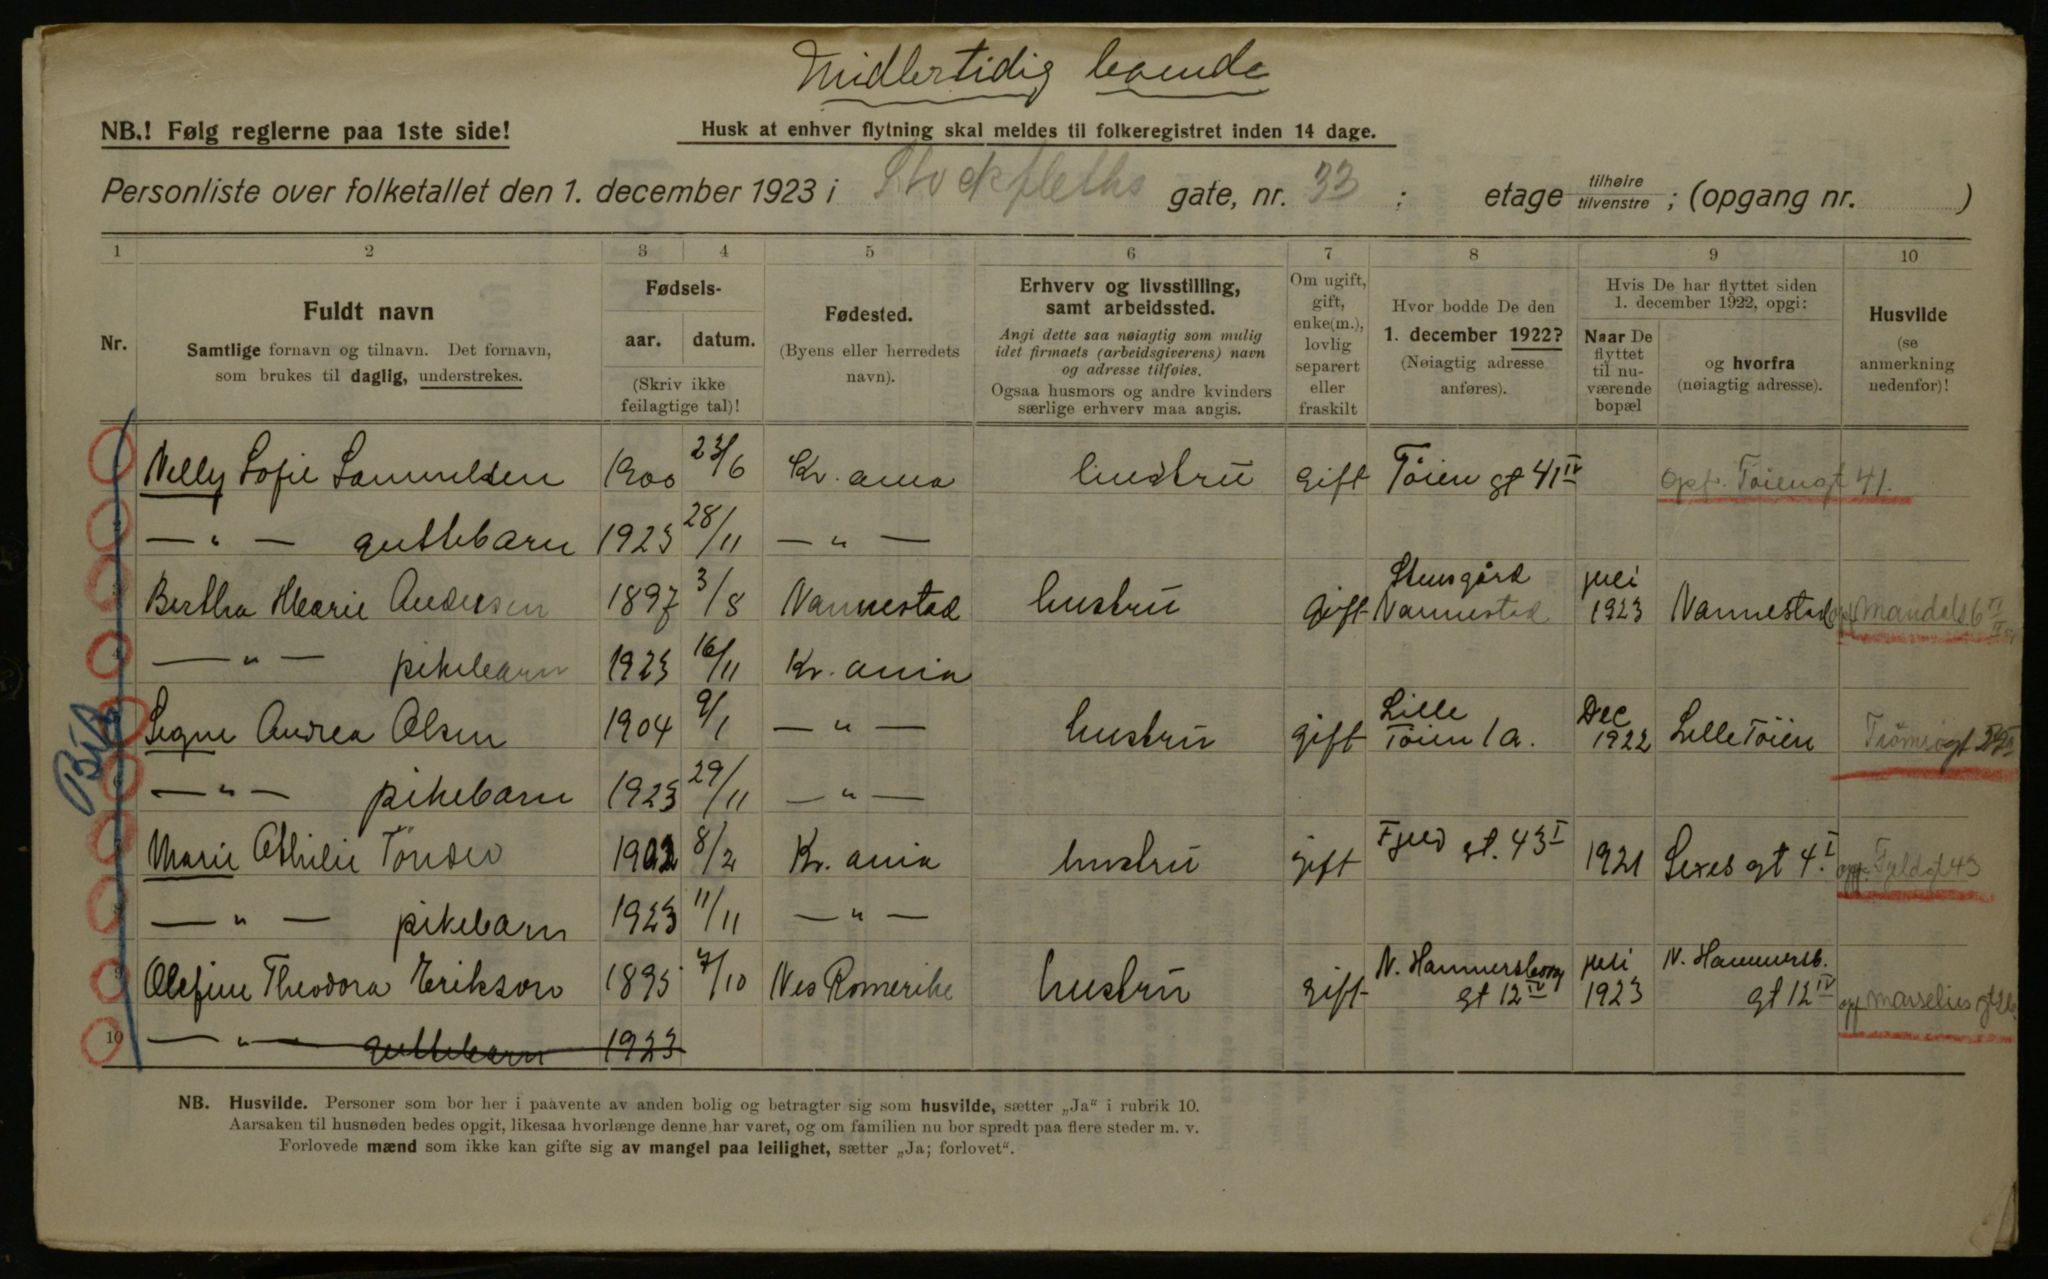 Midlertidig boende
NB.! Følg reglerne paa 1ste side!
Husk at enhver flytning skal meldes til folkeregistret inden 14 dage.
Personliste over folketallet den 1. december 1923 i Stockfleths gate, nr. 33 ; etage tilhøire tilvenstre ; (opgang nr. )
1 2 3 4 5 6 7 8 9 10
Nr.
Fuldt navn
Samtlige fornavn og tilnavn. Det fornavn,
som brukes til daglig, understrekes.
Fødsels-
aar. datum.
(Skriv ikke
feilagtige tal)!
Fødested.
(Byens eller herredets
navn).
Erhverv og livsstilling,
samt arbeidssted.
Angi dette saa nøiagtig som mulig
idet firmaets (arbeidsgiverens) navn
og adresse tilføies.
Ogsaa husmors og andre kvinders
særlige erhverv maa angis.
Om ugift,
gift,
enke(m.),
lovlig
separert
eller
fraskilt
Hvor bodde De den
1. december 1922?
(Nøiagtig adresse
anføres).
Hvis De har flyttet siden
1. december 1922, opgi:
Naar De
flyttet
til nu-
værende
bopæl
og hvorfra
(nøiagtig adresse).
Husvilde
(se
anmerkning
nedenfor)!
Nelly Sofie Samuelsen 1900 23/6 Kr.ania hustru gift Töien gt 41 IV opf. Töiengt 41.
— " — guttebarn 1923 28/11 — " —
Bertha Marie Andersen 1897 3/8 Nannestad hustru gift Stensgård Nannestad juli 1923 Nannestad opf Mandals 6
— " — pikebarn 1923 16/11 Kr.ania
Signe Andrea Olsen 1904 9/1 — " — hustru gift Lille Töien 1a. Dec 1922 Lille Töien Tromsøgt
— " — pikebarn 1923 29/11 — " —
Bfb
Marie Othilie 1902 8/2 Kr.ania hustru gift Fjeld gt. 43 I 1921 Sexes gt 4 I opf. Fjeldgt 43
— " — pikebarn 1923 11/11 — " —
9 Olefine Theodora Erikson 1895 7/10 Nes Romerike hustru gift N. Hammersborg gt 12 IV juli 1923 N. Hammersb. gt 12 IV opf Marselies gt
10 — " — guttebarn 1923
NB. Husvilde. Personer som bor her i paavente av anden bolig og betragter sig som husvilde, sætter „Ja“ i rubrik 10.
Aarsaken til husnøden bedes opgit, likesaa hvorlænge denne har varet, og om familien nu bor spredt paa flere steder m. v.
Forlovede mænd som ikke kan gifte sig av mangel paa leilighet, sætter „Ja; forlovet“.